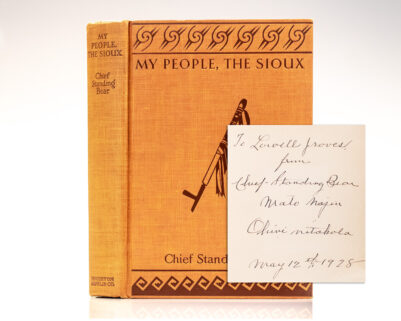 MY
PEOPLE,
THE SIOUX
Chief
Standing
Bear
HOUGHTON
MIFFLIN CO.
MY PEOPLE, THE SIOUX
Chief Stand
To Lowell
from
Chief Standing Bear
Mato Najin
Ohini mitakola
May 12 1928